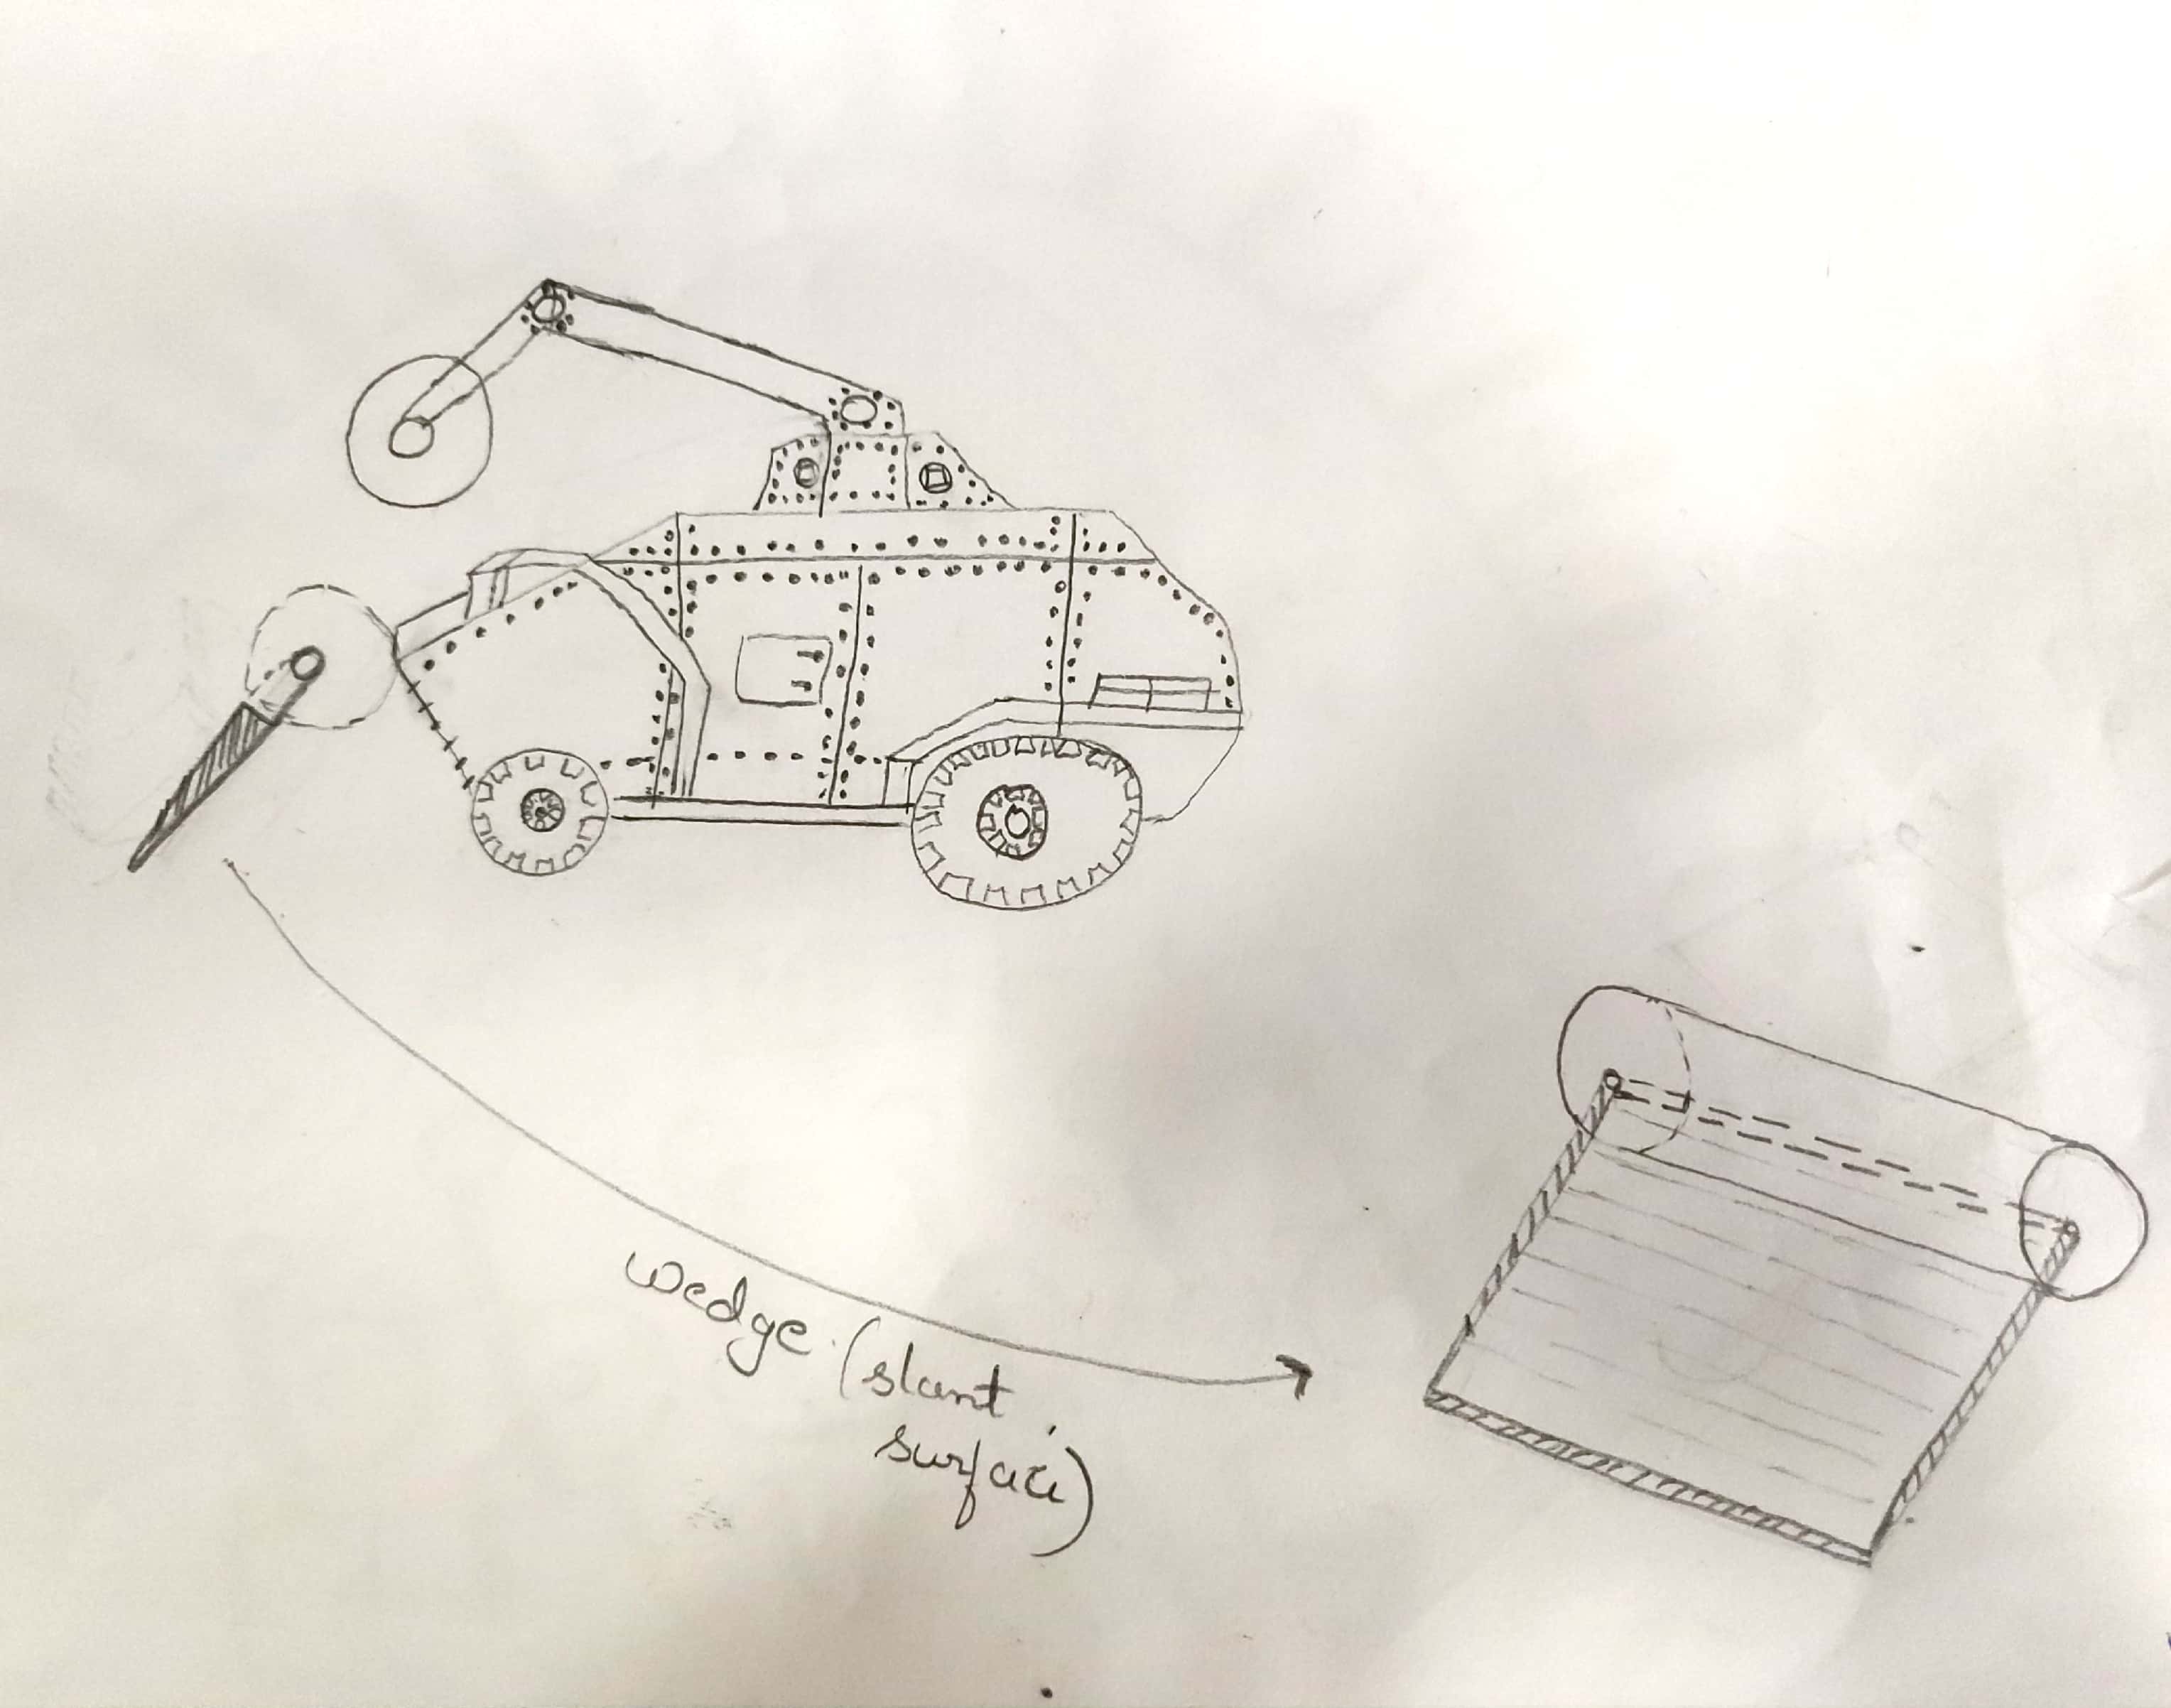 wedge (slant
surface)